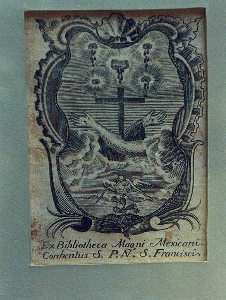 Ex Bibliotheca Magni Mexicani
Conventus S. P. N. S. Francisci.